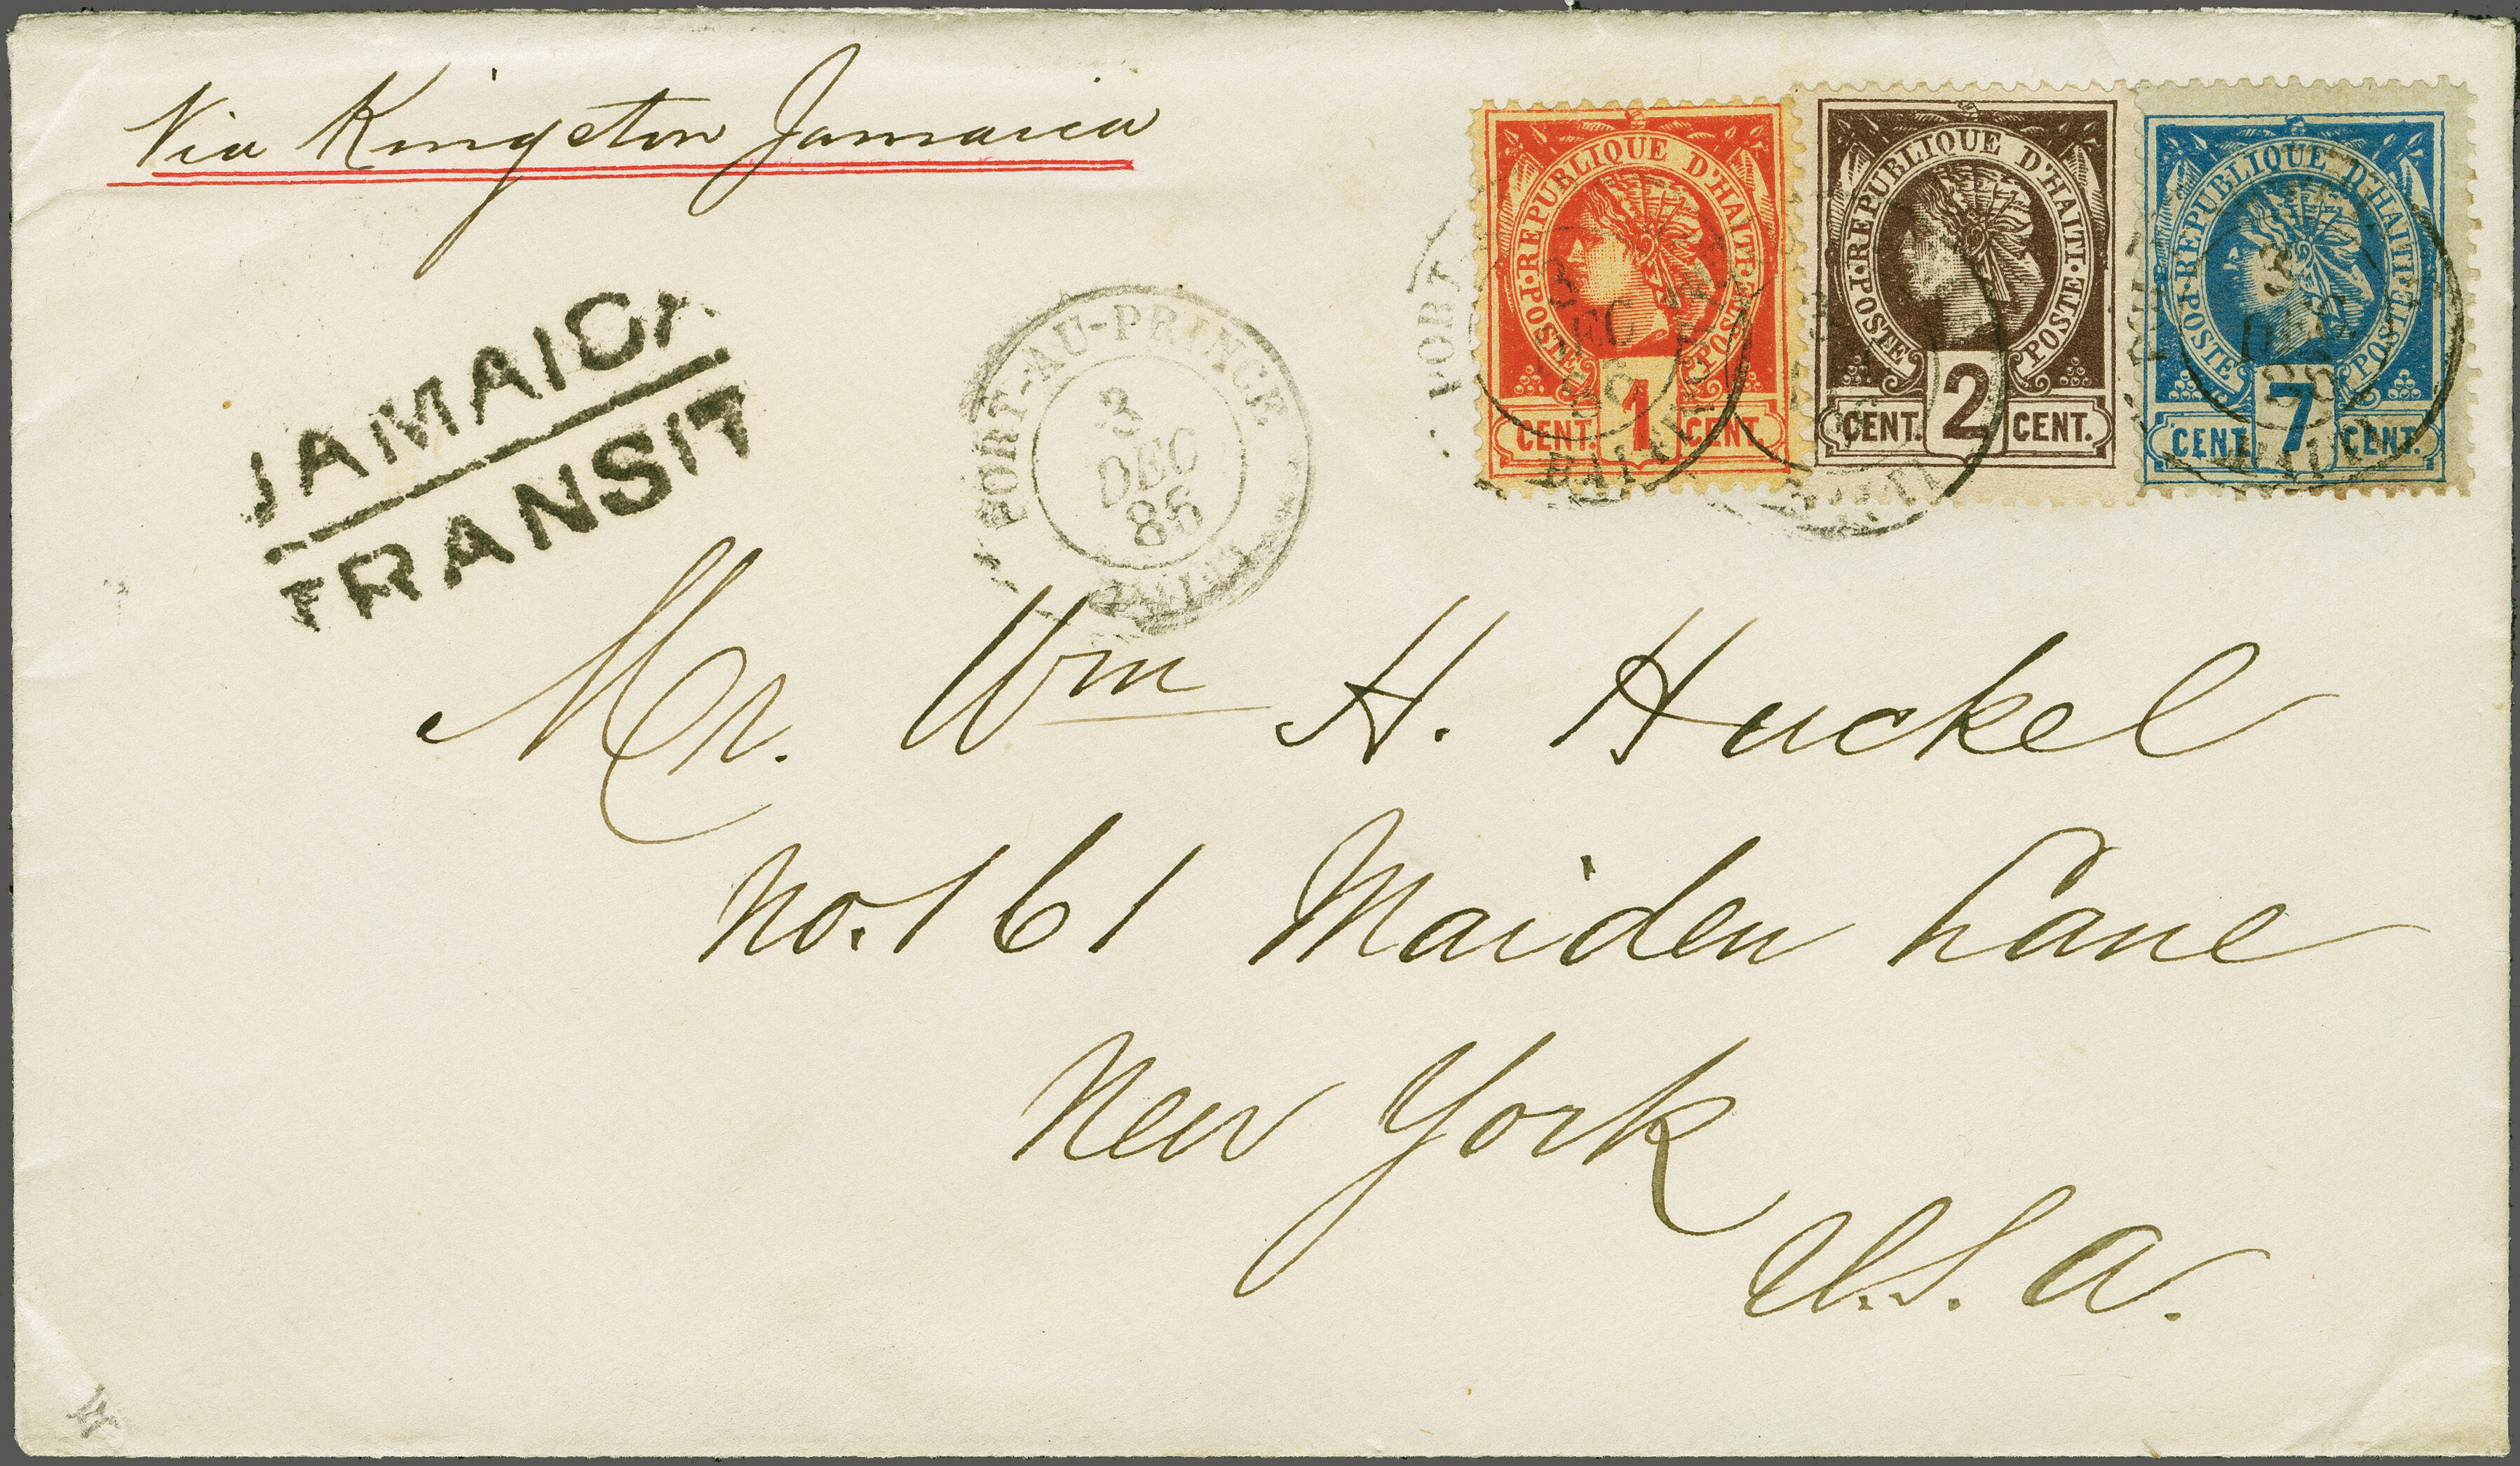 Via Kingston Jamaica
JAMAICA
TRANSIT
PORT-AU-PRINCE
3
DEC
86
HAITI
POSTE·REPUBLIQUE D'HAITI·POSTE
CENT. 1 CENT.
POSTE·REPUBLIQUE D'HAITI·POSTE
CENT. 2 CENT.
POSTE·REPUBLIQUE D'HAITI·POSTE
CENT. 7 CENT.
PORT
3
DEC
86
HAITI
3
DEC
86
HAITI
Mr. Wm H. Huckel
No. 161 Maiden Lane
New York
U.S.A.